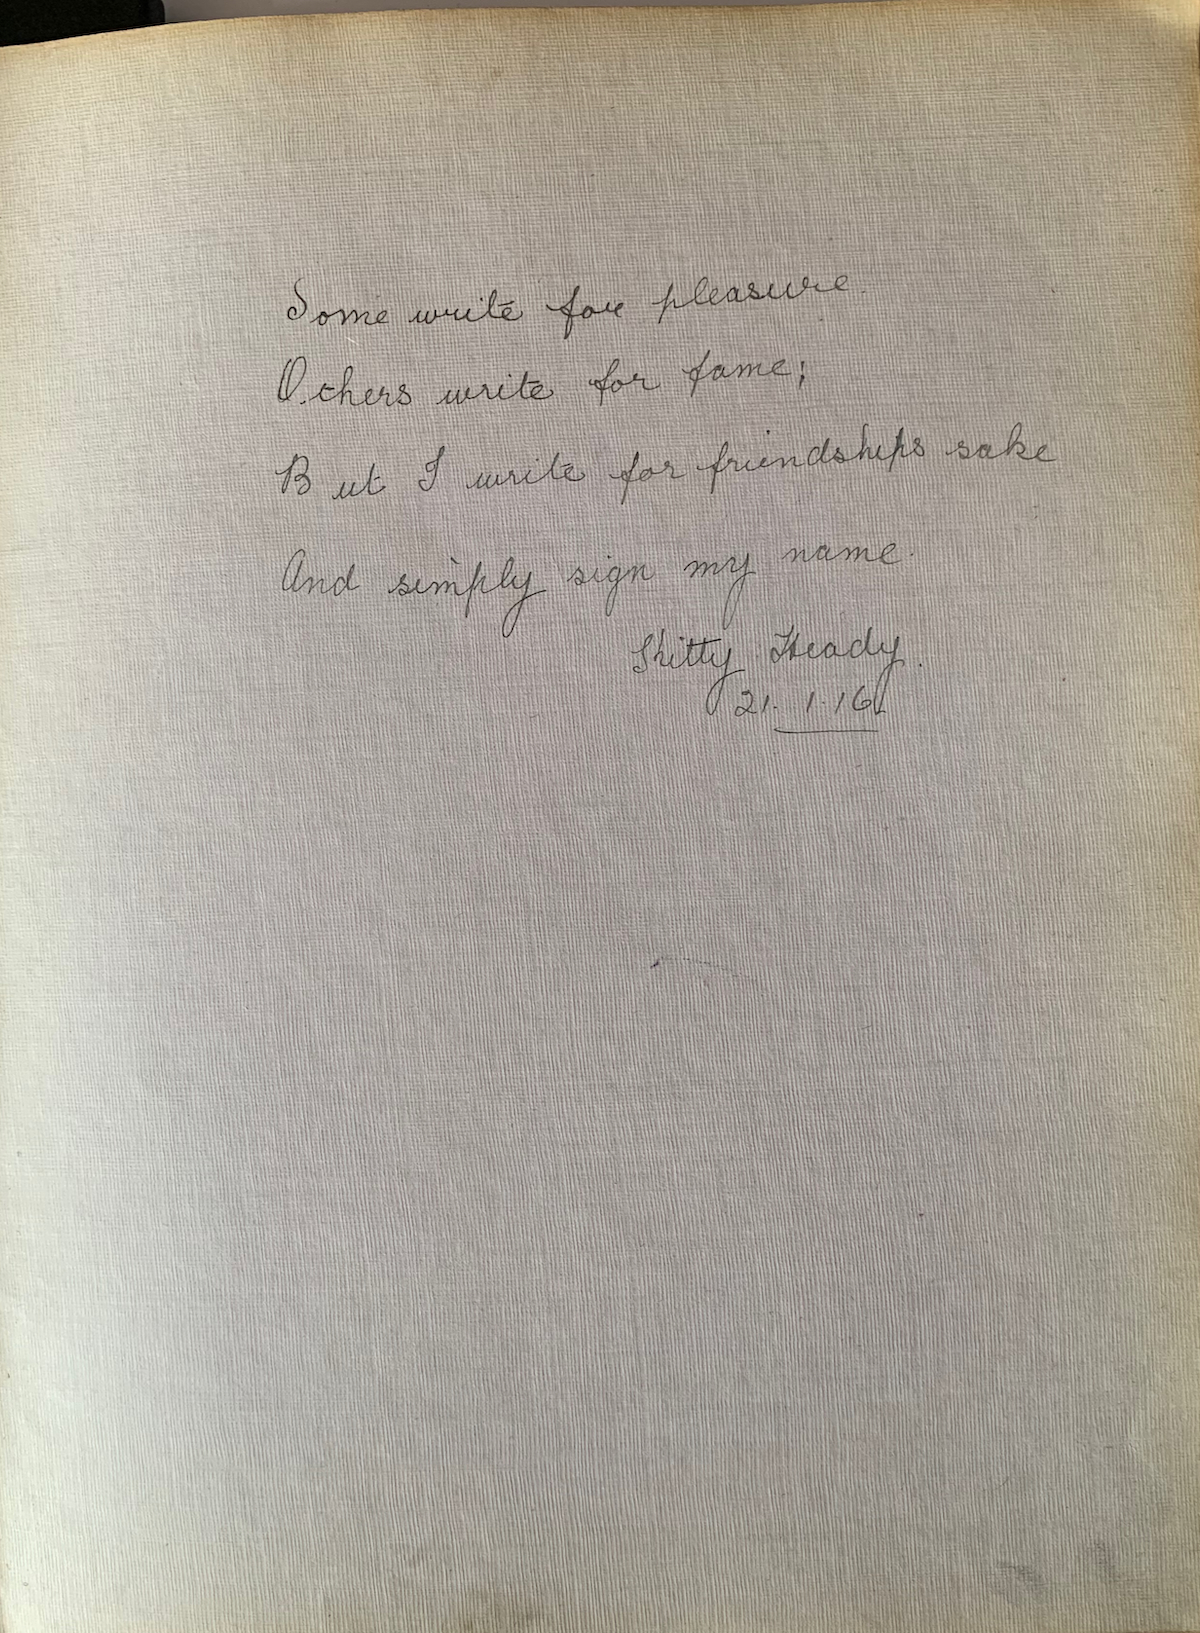 Some write for pleasure.
Others write for fame;
But I write for friendships sake
And simply sign my name.
Kitty Heady.
21. 1. 16.